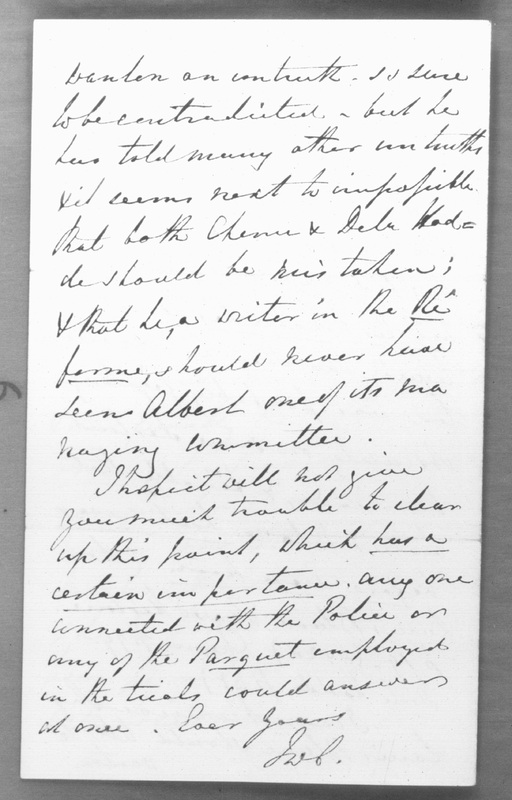 wanton an untruth - so sure
to be contradicted - but he
has told many other untruths
& it seems next to impossible
that both Chenu & Dela Hod=
de should be mistaken;
& that he, a writer in the Ré
forme, should never have
seen Albert one of its ma
naging committee.
I hope it will not give
you much trouble to clear
up this point, which has a
certain importance. any one
connected with the Police or
any of the Parquet employed
in the trials could answer
at once. Ever yours
JWC.